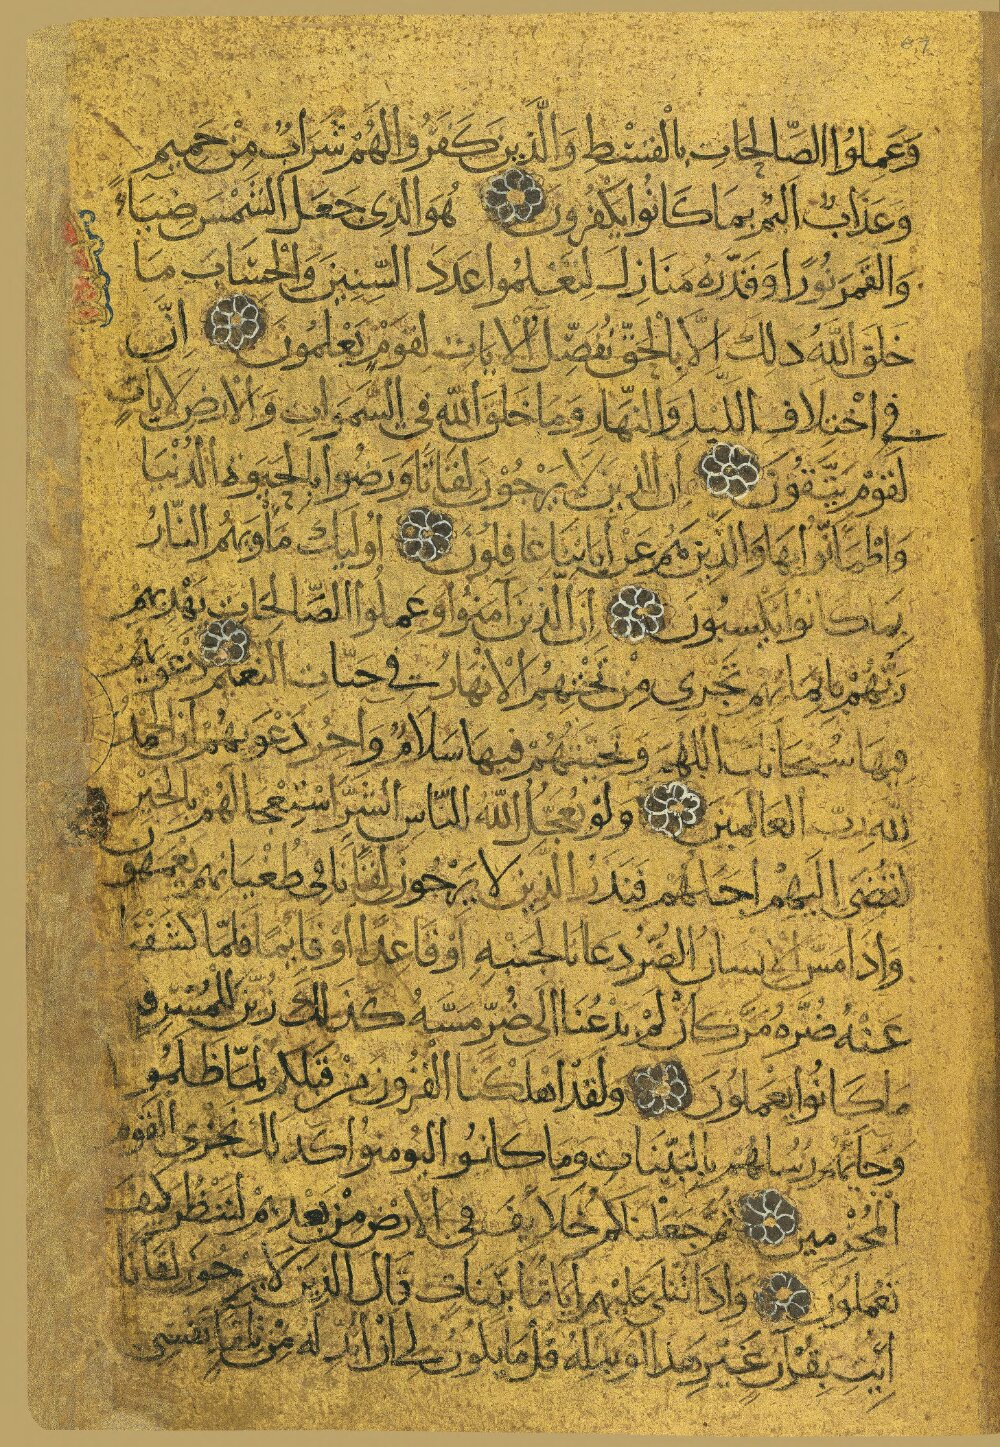 وَعَمِلُوا الصَّالِحَاتِ بِالْقِسْطِ وَالَّذِينَ كَفَرُوا لَهُمْ شَرَابٌ مِنْ حَمِيمٍ
وَعَذَابٌ أَلِيمٌ بِمَا كَانُوا يَكْفُرُونَ هُوَ الَّذِي جَعَلَ الشَّمْسَ ضِيَاءً
وَالْقَمَرَ نُورًا وَقَدَّرَهُ مَنَازِلَ لِتَعْلَمُوا عَدَدَ السِّنِينَ وَالْحِسَابَ مَا
خَلَقَ اللَّهُ ذَلِكَ إِلَّا بِالْحَقِّ نُفَصِّلُ الْآيَاتِ لِقَوْمٍ يَعْلَمُونَ إِنَّ
فِي اخْتِلَافِ اللَّيْلِ وَالنَّهَارِ وَمَا خَلَقَ اللَّهُ فِي السَّمَوَاتِ وَالْأَرْضِ لَآيَاتٍ
لِقَوْمٍ يَتَّقُونَ إِنَّ الَّذِينَ لَا يَرْجُونَ لِقَاءَنَا وَرَضُوا بِالْحَيَوةِ الدُّنْيَا
وَاطْمَأَنُّوا بِهَا وَالَّذِينَ هُمْ عَنْ آيَاتِنَا غَافِلُونَ أُولَئِكَ مَأْوَيهُمُ النَّارُ
بِمَا كَانُوا يَكْسِبُونَ إِنَّ الَّذِينَ آمَنُوا وَعَمِلُوا الصَّالِحَاتِ يَهْدِيهِمْ
رَبُّهُمْ بِإِيمَانِهِمْ تَجْرِي مِنْ تَحْتِهِمُ الْأَنْهَارُ فِي جَنَّاتِ النَّعِيمِ دَعْوَيهُمْ
فِيهَا سُبْحَانَكَ اللَّهُمَّ وَتَحِيَّتُهُمْ فِيهَا سَلَامٌ وَآخِرُ دَعْوَيهُمْ أَنِ الْحَمْدُ
لِلَّهِ رَبِّ الْعَالَمِينَ وَلَوْ يُعَجِّلُ اللَّهُ لِلنَّاسِ الشَّرَّ اسْتِعْجَالَهُمْ بِالْخَيْرِ
لَقُضِيَ إِلَيْهِمْ أَجَلُهُمْ فَنَذَرُ الَّذِينَ لَا يَرْجُونَ لِقَاءَنَا فِي طُغْيَانِهِمْ يَعْمَهُونَ
وَإِذَا مَسَّ الْإِنْسَانَ الضُّرُّ دَعَانَا لِجَنْبِهِ أَوْ قَاعِدًا أَوْ قَائِمًا فَلَمَّا كَشَفْنَا
عَنْهُ ضُرَّهُ مَرَّ كَأَنْ لَمْ يَدْعُنَا إِلَى ضُرٍّ مَسَّهُ كَذَلِكَ زُيِّنَ لِلْمُسْرِفِينَ
مَا كَانُوا يَعْمَلُونَ وَلَقَدْ أَهْلَكْنَا الْقُرُونَ مِنْ قَبْلِكُمْ لَمَّا ظَلَمُوا
وَجَاءَتْهُمْ رُسُلُهُمْ بِالْبَيِّنَاتِ وَمَا كَانُوا لِيُؤْمِنُوا كَذَلِكَ نَجْزِي الْقَوْمَ
الْمُجْرِمِينَ ثُمَّ جَعَلْنَاكُمْ خَلَائِفَ فِي الْأَرْضِ مِنْ بَعْدِهِمْ لِنَنْظُرَ كَيْفَ
تَعْمَلُونَ وَإِذَا تُتْلَى عَلَيْهِمْ آيَاتُنَا بَيِّنَاتٍ قَالَ الَّذِينَ لَا يَرْجُونَ لِقَاءَنَا
ائْتِ بِقُرْآنٍ غَيْرِ هَذَا أَوْ بَدِّلْهُ قُلْ مَا يَكُونُ لِي أَنْ أُبَدِّلَهُ مِنْ تِلْقَاءِ نَفْسِي